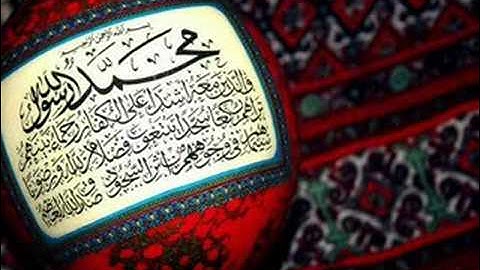 بسم الله الرحمن الرحيم
محمد رسول الله
والذين معه اشداء على الكفار رحماء بينهم
تراهم ركعا سجدا يبتغون فضلا من الله ورضوانا
سيماهم في وجوههم من اثر السجود صدق الله